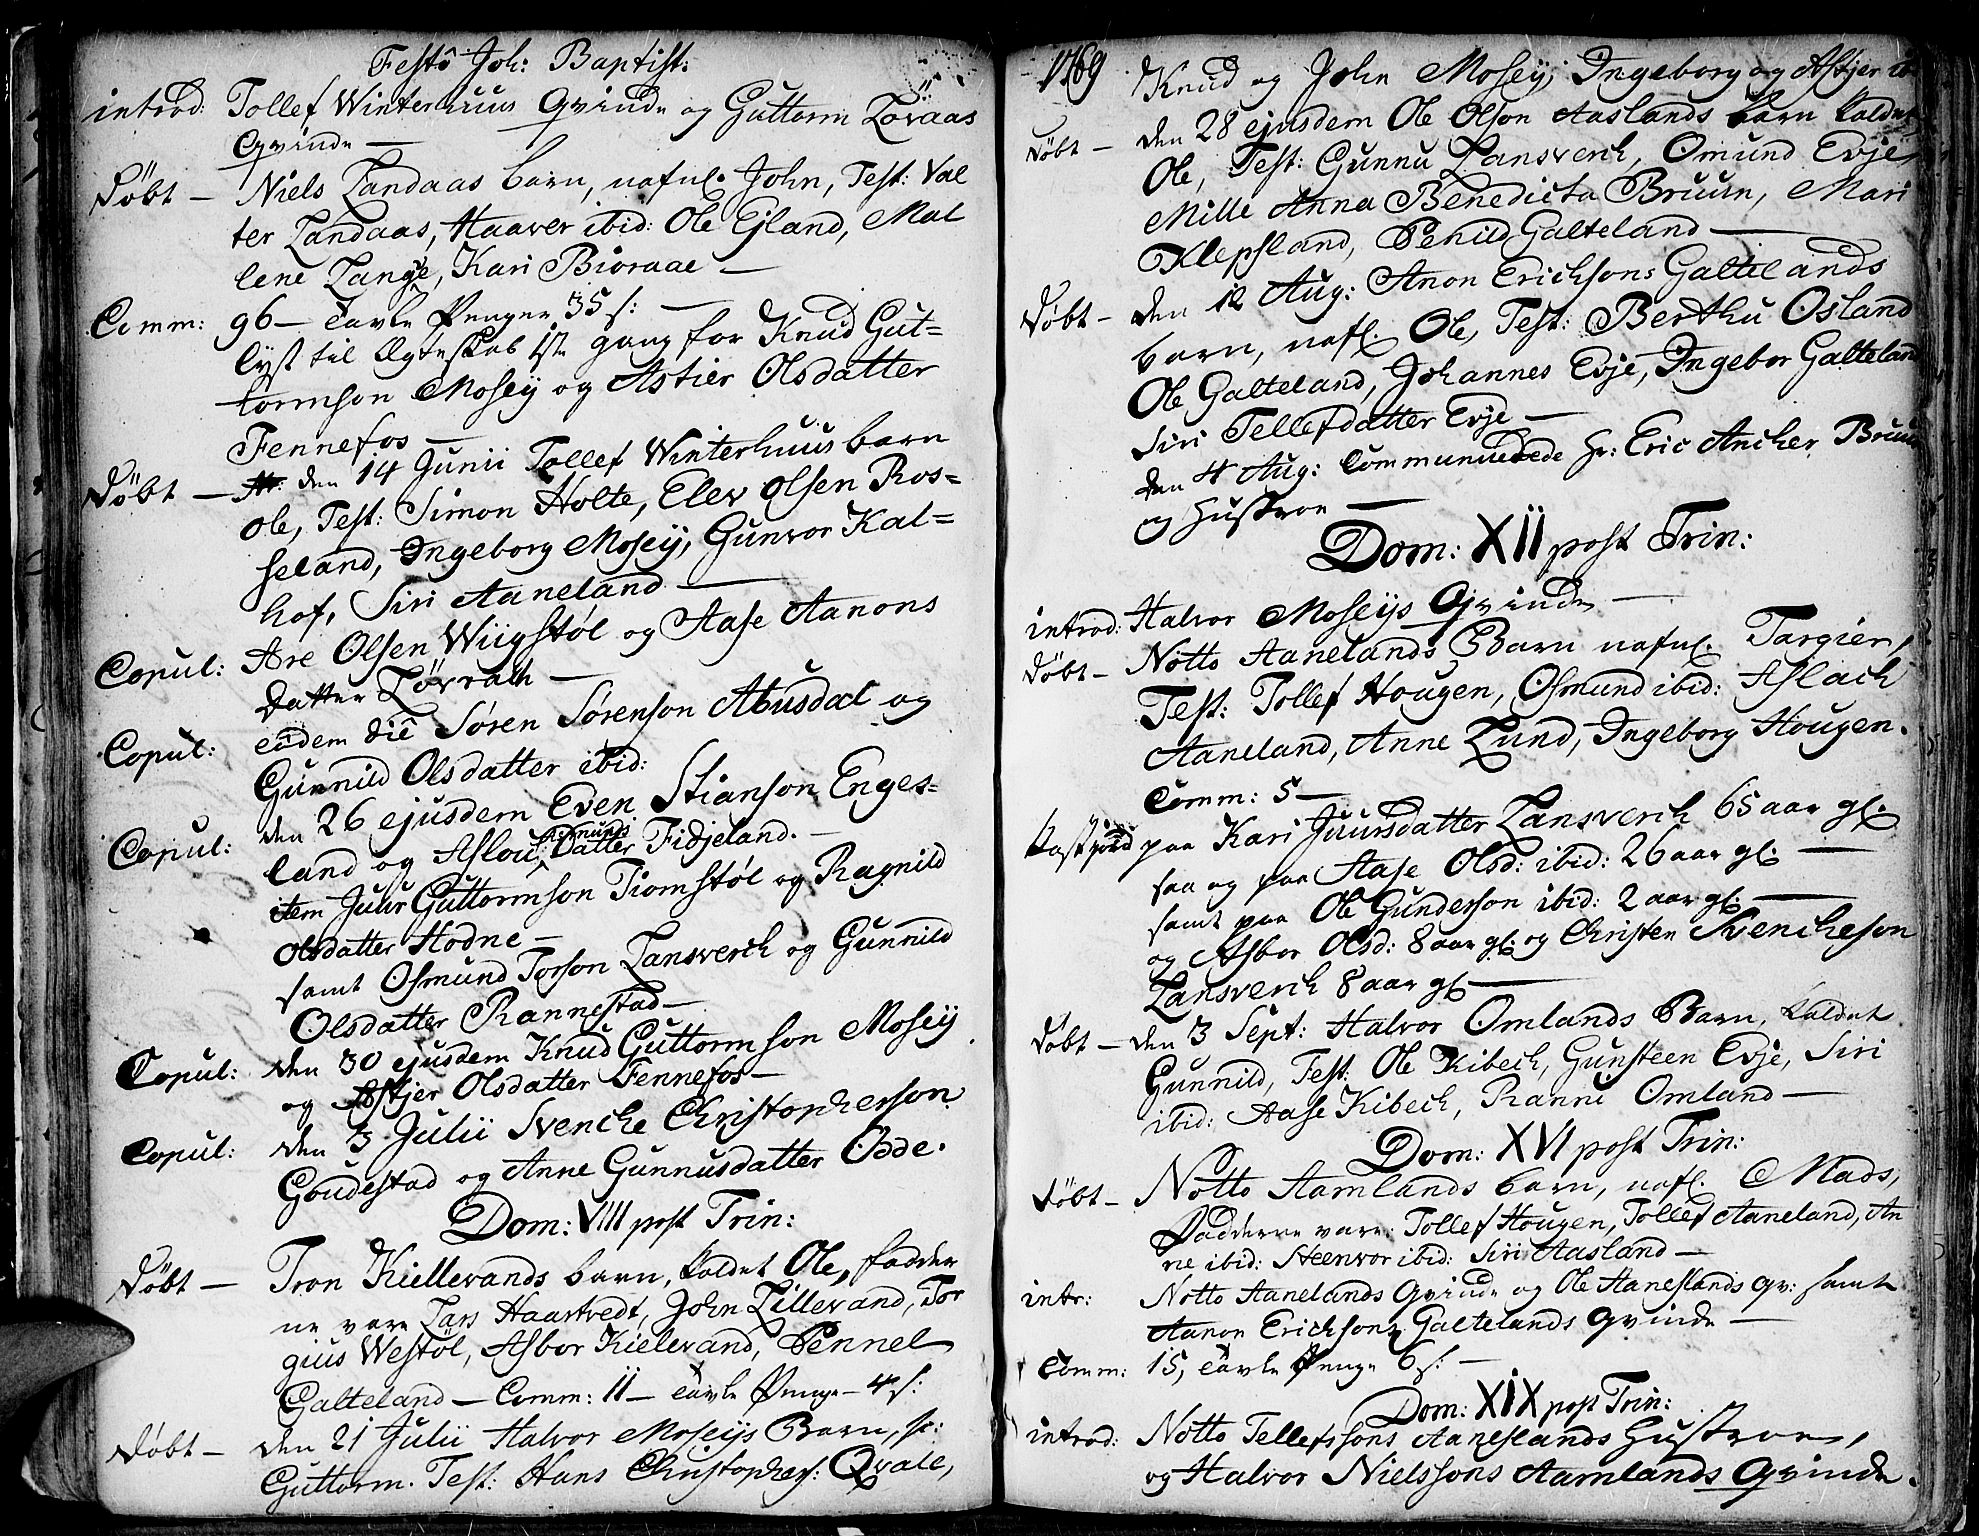 Festo Joh: Baptist:
introd: Tollef Winterhuus Qvinde og Guttorm Løvaas
Qvinde —
Døbt — Niels Landaas barn, nafnl. John, Test: Val
ter Landaas, Haaver ibid: Ole Ejland, Mal
lene Lange, Kari Bioraae —
Comm: 96 — Tavle Penger 35 s: —
lyst til Ægteskab 1ste gang for Knud Gut=
tormson Mosey og Astier Olsdatter
Fennefos —
Døbt — den 14 Junii Tollef Winterhuus barn
Ole, Test: Simon Holte, Elev Olsen Ros=
seland, Ingeborg Mosey, Gunvor Kal=
hof, Siri Aaneland —
Copul: Are Olsen Wiigstøl og Aase Aanons
datter Løvrath —
Copul: eidem die Søren Sørenson Abusdal og
Gunnild Olsdatter ibid:
Copul: den 26 ejusdem Even Stianson Enges=
land og Aslou Asmunds Datter Fidjeland. —
item Juur Guttormson Tiomstøl og Ragnild
Olsdatter Hodne —
samt Osmund Torson Lansverch og Gunnild
Olsdatter Rannestad —
Copul: den 30 ejusdem Knud Guttormson Mosey
og Astjer Olsdatter Fennefos —
Copul: den 3 Julii Svenche Christopherson
Goudestad og Anne Gunnusdatter Odde.
Dom: VIII post Trin:
Døbt — Tron Kiellevands barn, kaldet Ole, fadder
ne vare Lars Haartvedt, John Lillevand, Tor
gius Westøl, Asbor Kielevand, Pennel
Galteland — Comm: 11 — Tavle Penge — 4 s:
Døbt — den 21 Julii Halvor Moseys Barn,
Guttorm. Test: Hans Christophers: Qvale,
1769 Knud og John Mosey, Ingeborg og Astjer
Døbt — den 28 ejusdem Ole Olson Aaslands barn kaldet
Ole, Test: Gunnu Lansverch, Omund Evje
Mille Anna Benedicta Bruun, Mari
Klepsland, Penild Galteland —
Døbt — den 12 Aug: Anon Ericksons Galtelands
barn, nafl. Ole, Test: Berthu Osland
Ole Galteland, Johannes Evje, Ingebor Galteland
Siri Tellefdatter Evje —
den 4 Aug: Communicerede Hr: Eric Ancher Bruun
og Hustroe —
Dom: XII post Trin:
introd: Halvor Moseys Qvinde —
Døbt — Notto Aanelands Barn nafnl. Targier,
Test: Tollef Hougen, Osmund ibid: Aslach
Aaneland, Anne Lund, Ingeborg Hougen.
Comm: 5 —
paa Kari Juursdatter Lansverch 65 aar gl.
saa og paa Aase Olsd: ibid: 26 aar gl. —
samt paa Ole Gunderson ibid: 2 aar gl. —
og Asbor Olsd: 8 aar gl. og Christen Svencheson
Lansverch 8 aar gl. —
Døbt — den 3 Sept: Halvor Omlands Barn, kaldet
Gunnild, Test: Ole Kibech, Gunsteen Evje, Siri
ibid: Aase Kibech, Ranni Omland —
Dom: XVI post Trin:
Døbt — Notto Aamlands barn, nafl. Mads,
Fadderne vare: Tollef Hougen, Tollef Aaneland, An
ne ibid: Steenvor ibid: Siri Aasland —
intr: Notto Aanelands Qvinde og Ole Aaneslands Qv: samt
Aanon Ericksons Galtelands Qvinde —
Comm: 15, Tavle Penge 6 s: —
Dom: XIX post Trin:
introd: Notto Tellefssons Aaneslands Hustroe,
og Halvor Nielssons Aamlands Qvinde.